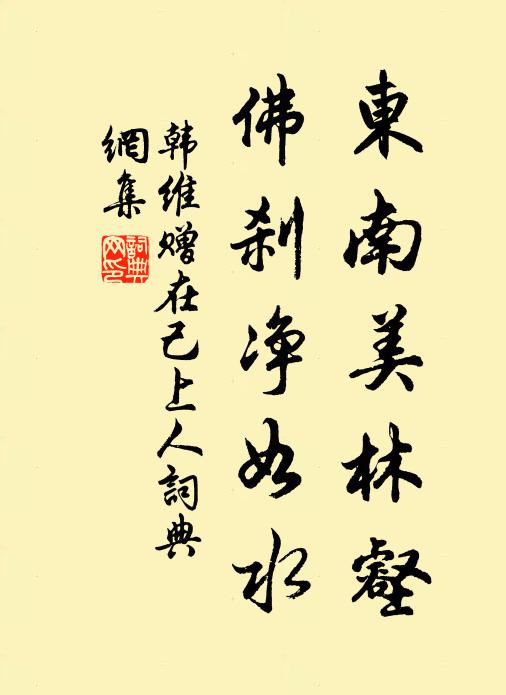 東南美林壑
佛刹净如水
韩维赠在己上人詞典
網集
詞典網印